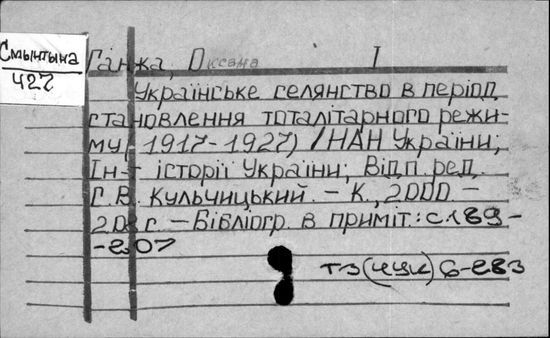 Смынтына
427
Ганжа, Оксана I
Українське селянство в період
становлення тоталітарного режи-
му (1917-1927) / НАН України;
Ін-т історії України; Відп. ред.
С. В. Кульчицький. – К., 2000. –
208 с. – Бібліогр. в приміт.: с. 189-
-207
Т3(4Ук)6-283